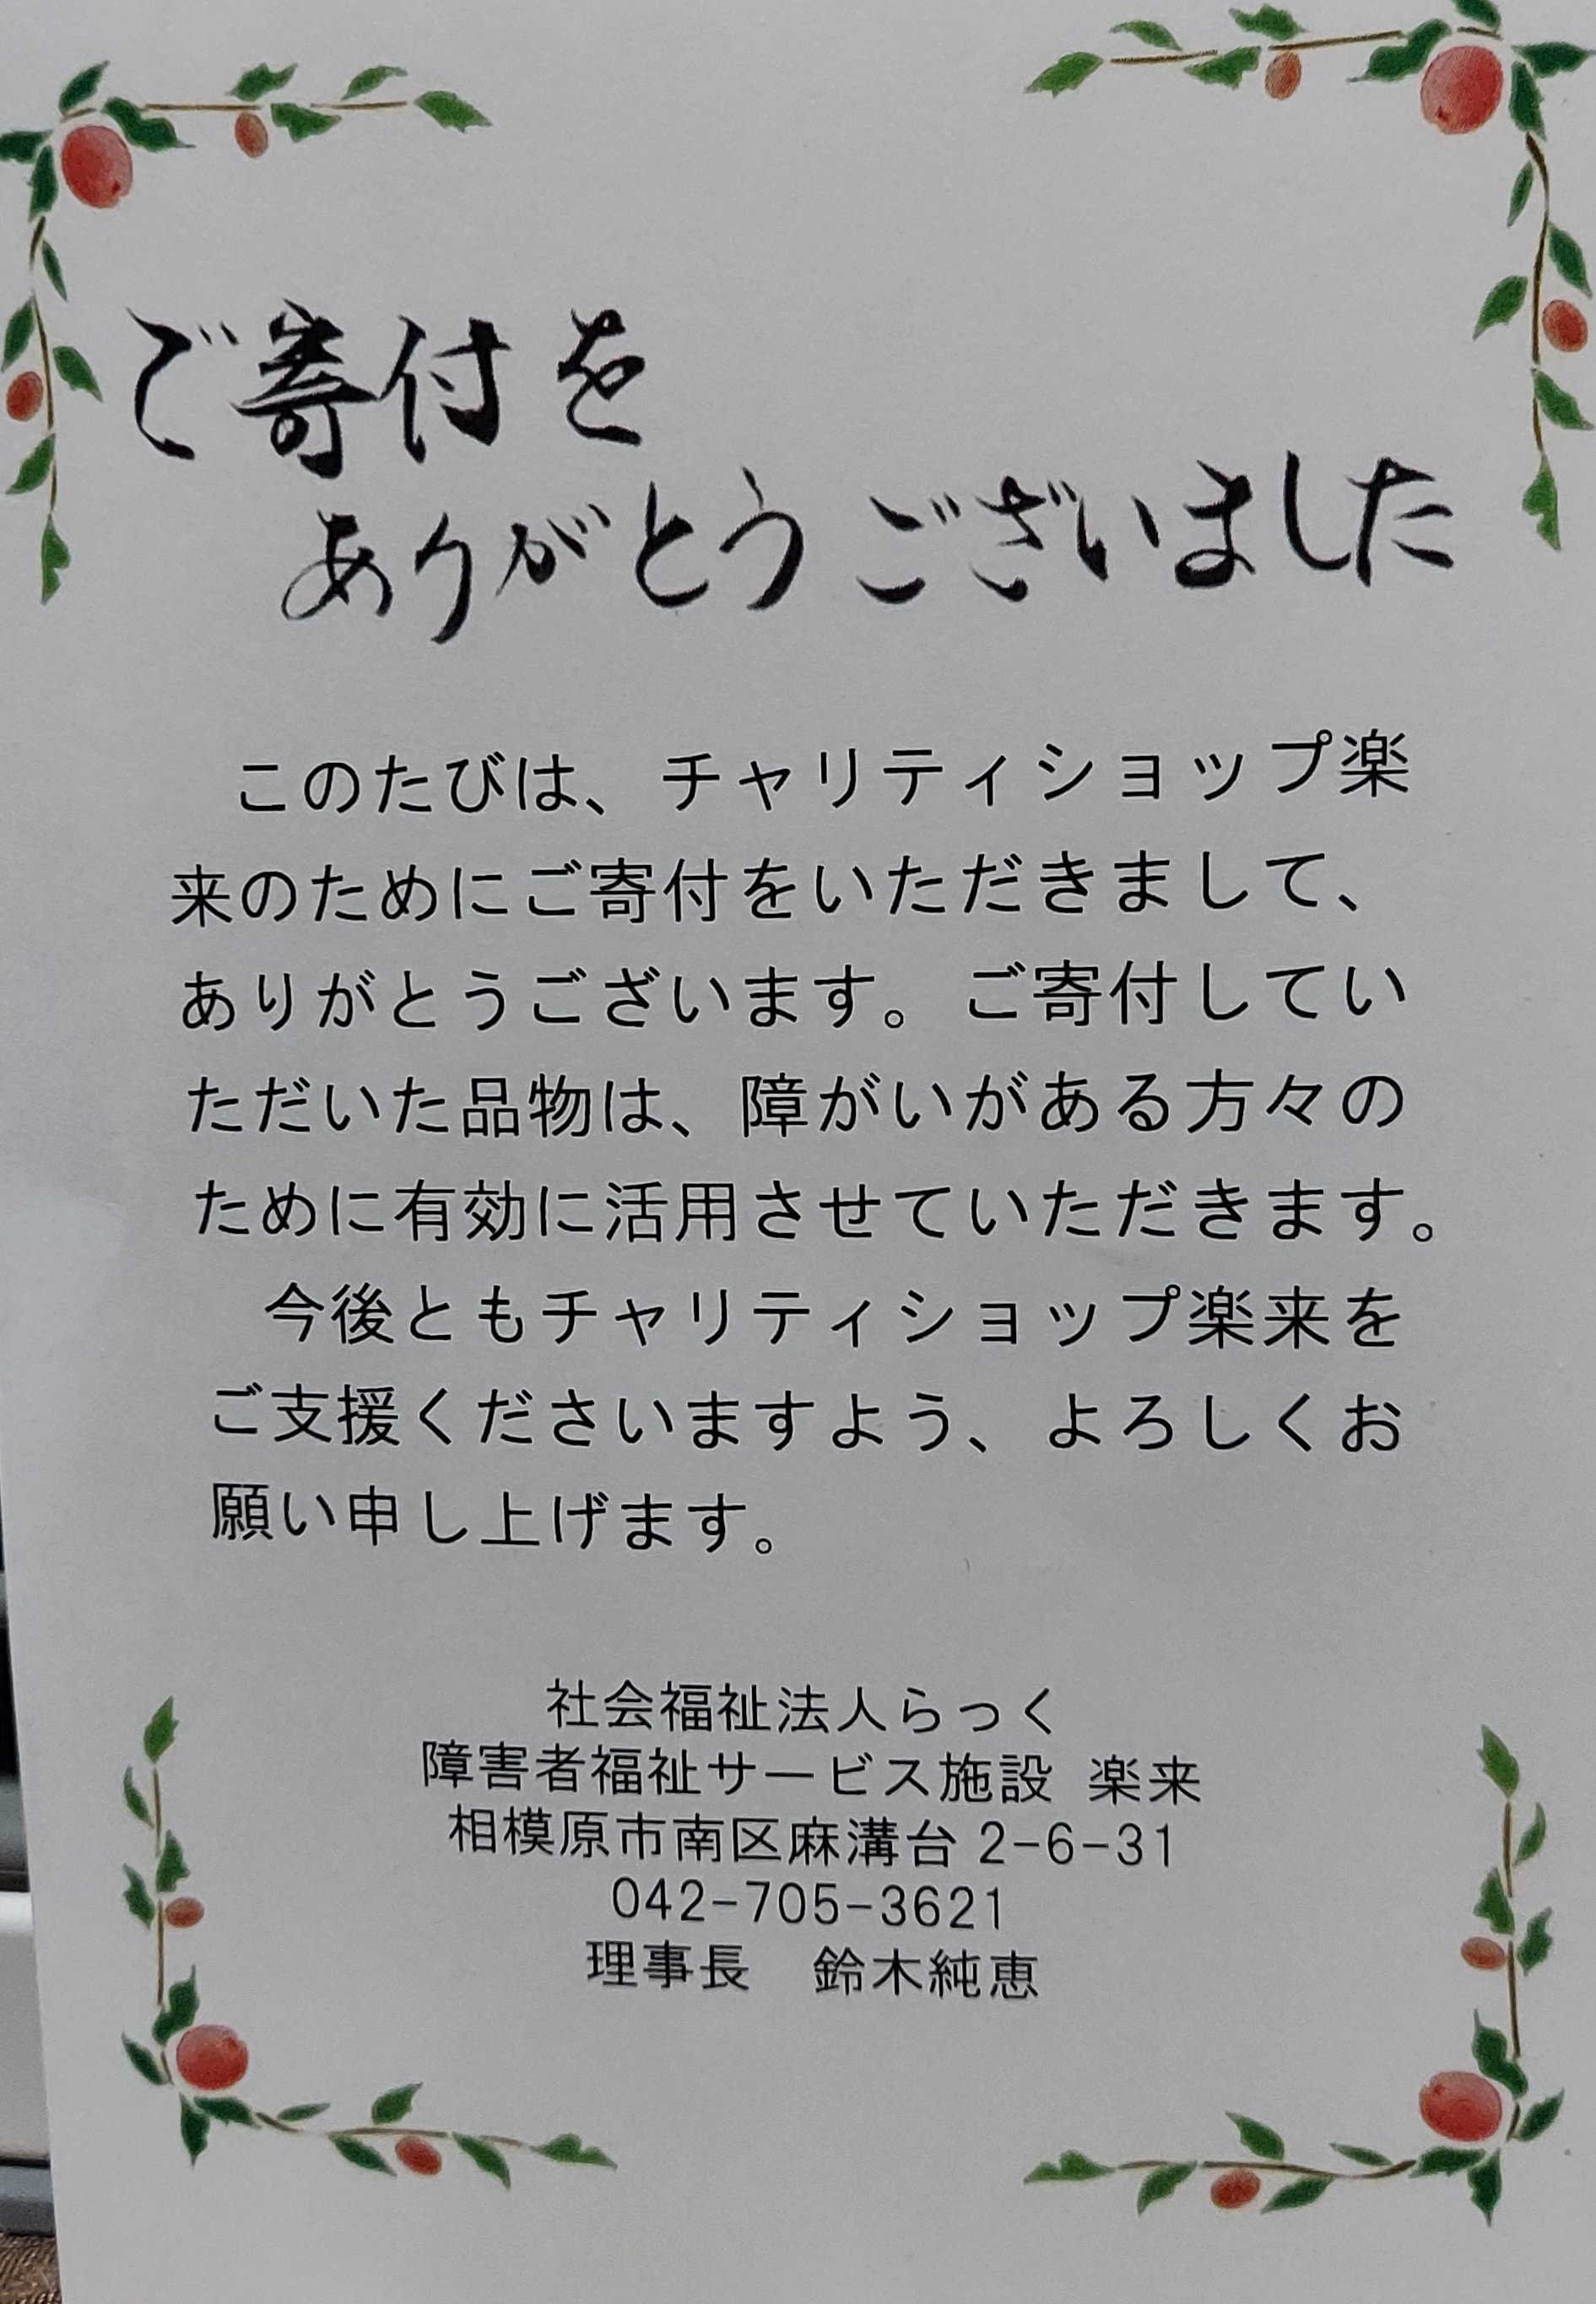 ご寄付を
ありがとうございました
このたびは、チャリティショップ楽
来のためにご寄付をいただきまして、
ありがとうございます。ご寄付してい
ただいた品物は、障がいがある方々の
ために有効に活用させていただきます。
今後ともチャリティショップ楽来を
ご支援くださいますよう、よろしくお
願い申し上げます。
社会福祉法人らっく
障害者福祉サービス施設 楽来
相模原市南区麻溝台2-6-31
042-705-3621
理事長 鈴木純恵